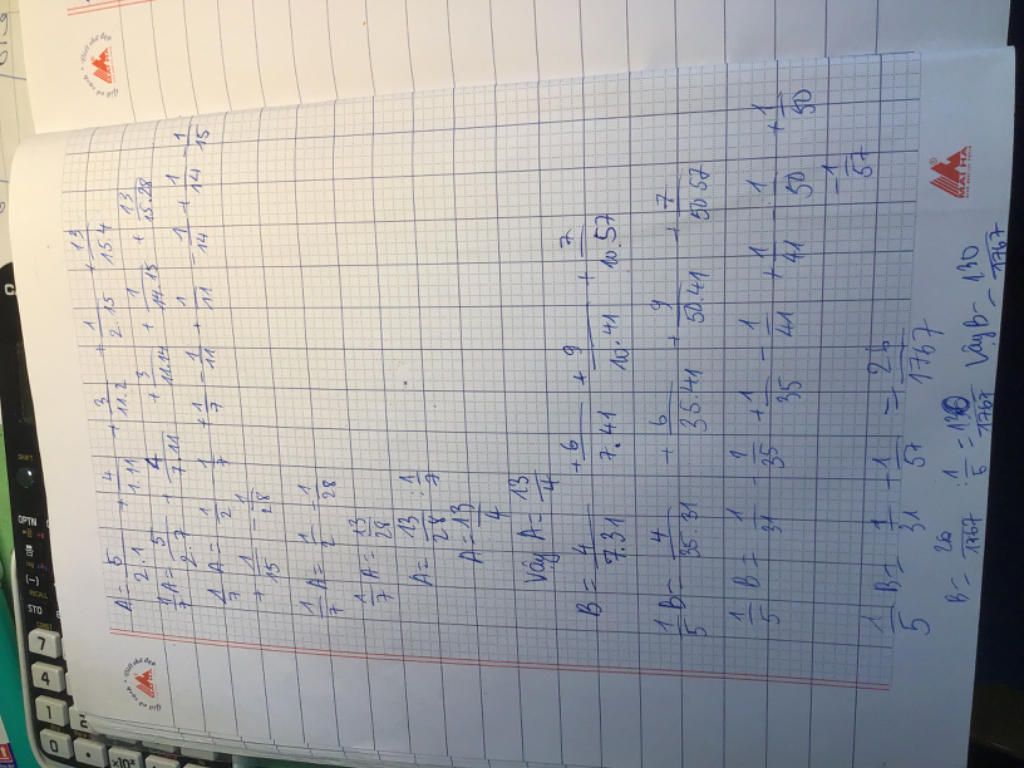 A = 5/2.1 + 4/1.11 + 3/11.2 + 1/2.15 + 13/15.4
1/7 A = 5/2.7 + 4/7.11 + 3/11.14 + 1/14.15 + 13/15.28
1/7 A = 1/2 - 1/7 + 1/7 - 1/11 + 1/11 - 1/14 + 1/14 - 1/15
+ 1/15 - 1/28
1/7 A = 1/2 - 1/28
1/7 A = 13/28
A = 13/28 : 1/7
A = 13/4
Vậy A = 13/4
B = 4/7.31 + 6/7.41 + 9/10.41 + 7/10.57
1/5 B = 4/35.31 + 6/35.41 + 9/50.41 + 7/50.57
1/5 B = 1/31 - 1/35 + 1/35 - 1/41 + 1/41 - 1/50 + 1/50
- 1/57
1/5 B = 1/31 + 1/57 = 26/1767
B = 26/1767 : 1/5 = 130/1767 Vậy B = 130/1767
MAI HA
7
4
1
0
OPTN
(-)
STO
SHIFT
RECALL